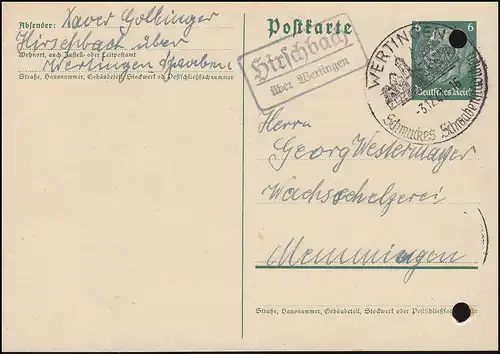 Absender: Xaver Gollinger
Hirschbach über
Wohnort, auch Zustell- oder Leitpostamt
Wertingen Schwaben
Straße, Hausnummer, Gebäudeteil, Stockwerk od. Postschließfachnummer
Postkarte
Hirschbach
über Wertingen
WERTINGEN
Schmuckes Schwabenstädtchen
6 6
Deutsches Reich
Herrn
Georg Westermayer
Wachsschelzerei
Memmingen
Straße, Hausnummer, Gebäudeteil, Stockwerk oder Postschließfachnummer